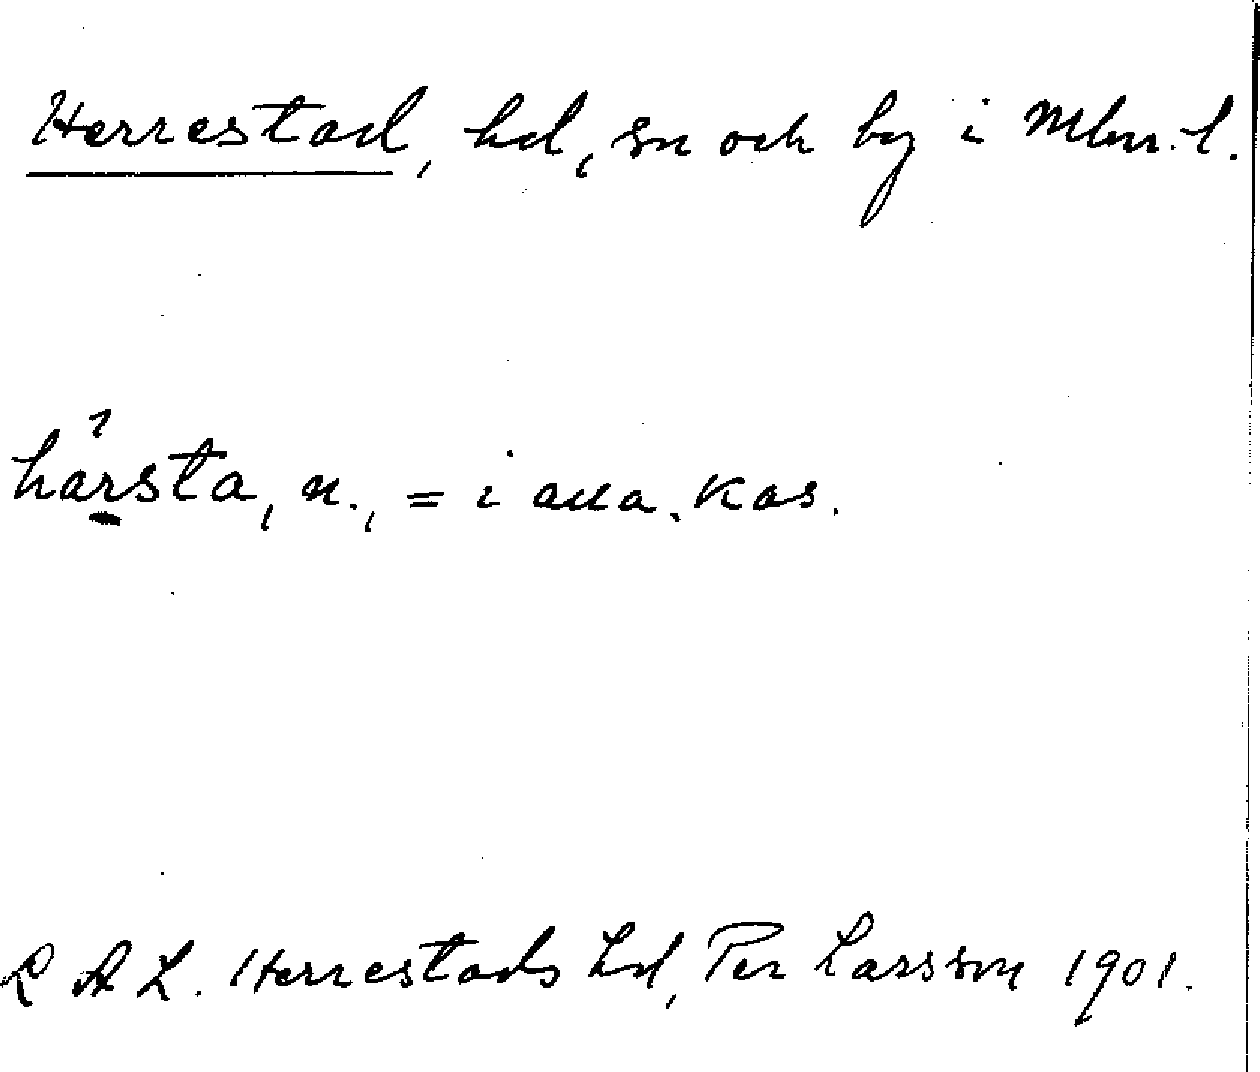 Herrestad, hd, sn och by i Mlm. l.
härsta, n., = i alla. kas.
L A L. Herrestads hd, Per Larsson 1901.